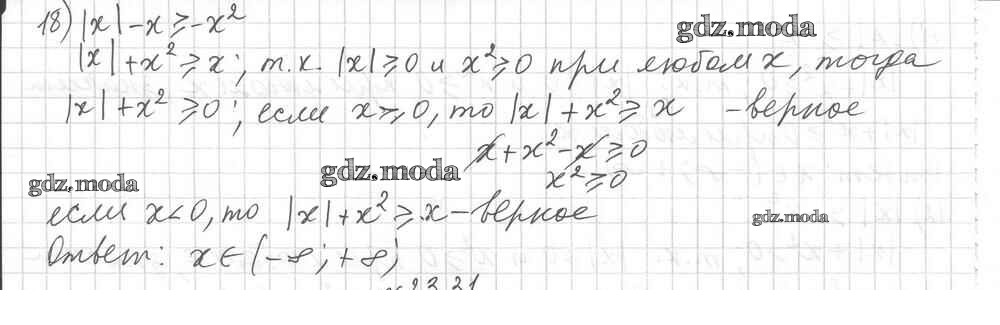 18) |x| - x ≥ -x²
gdz.moda
|x| + x² ≥ x; т.к. |x| ≥ 0 и x² ≥ 0 при любом x, тогда
|x| + x² ≥ 0; если x ≥ 0, то |x| + x² ≥ x - верное
x + x² - x ≥ 0
x² ≥ 0
gdz.moda
gdz.moda
если x < 0, то |x| + x² ≥ x - верное
gdz.moda
Ответ: x ∈ (-∞; +∞)